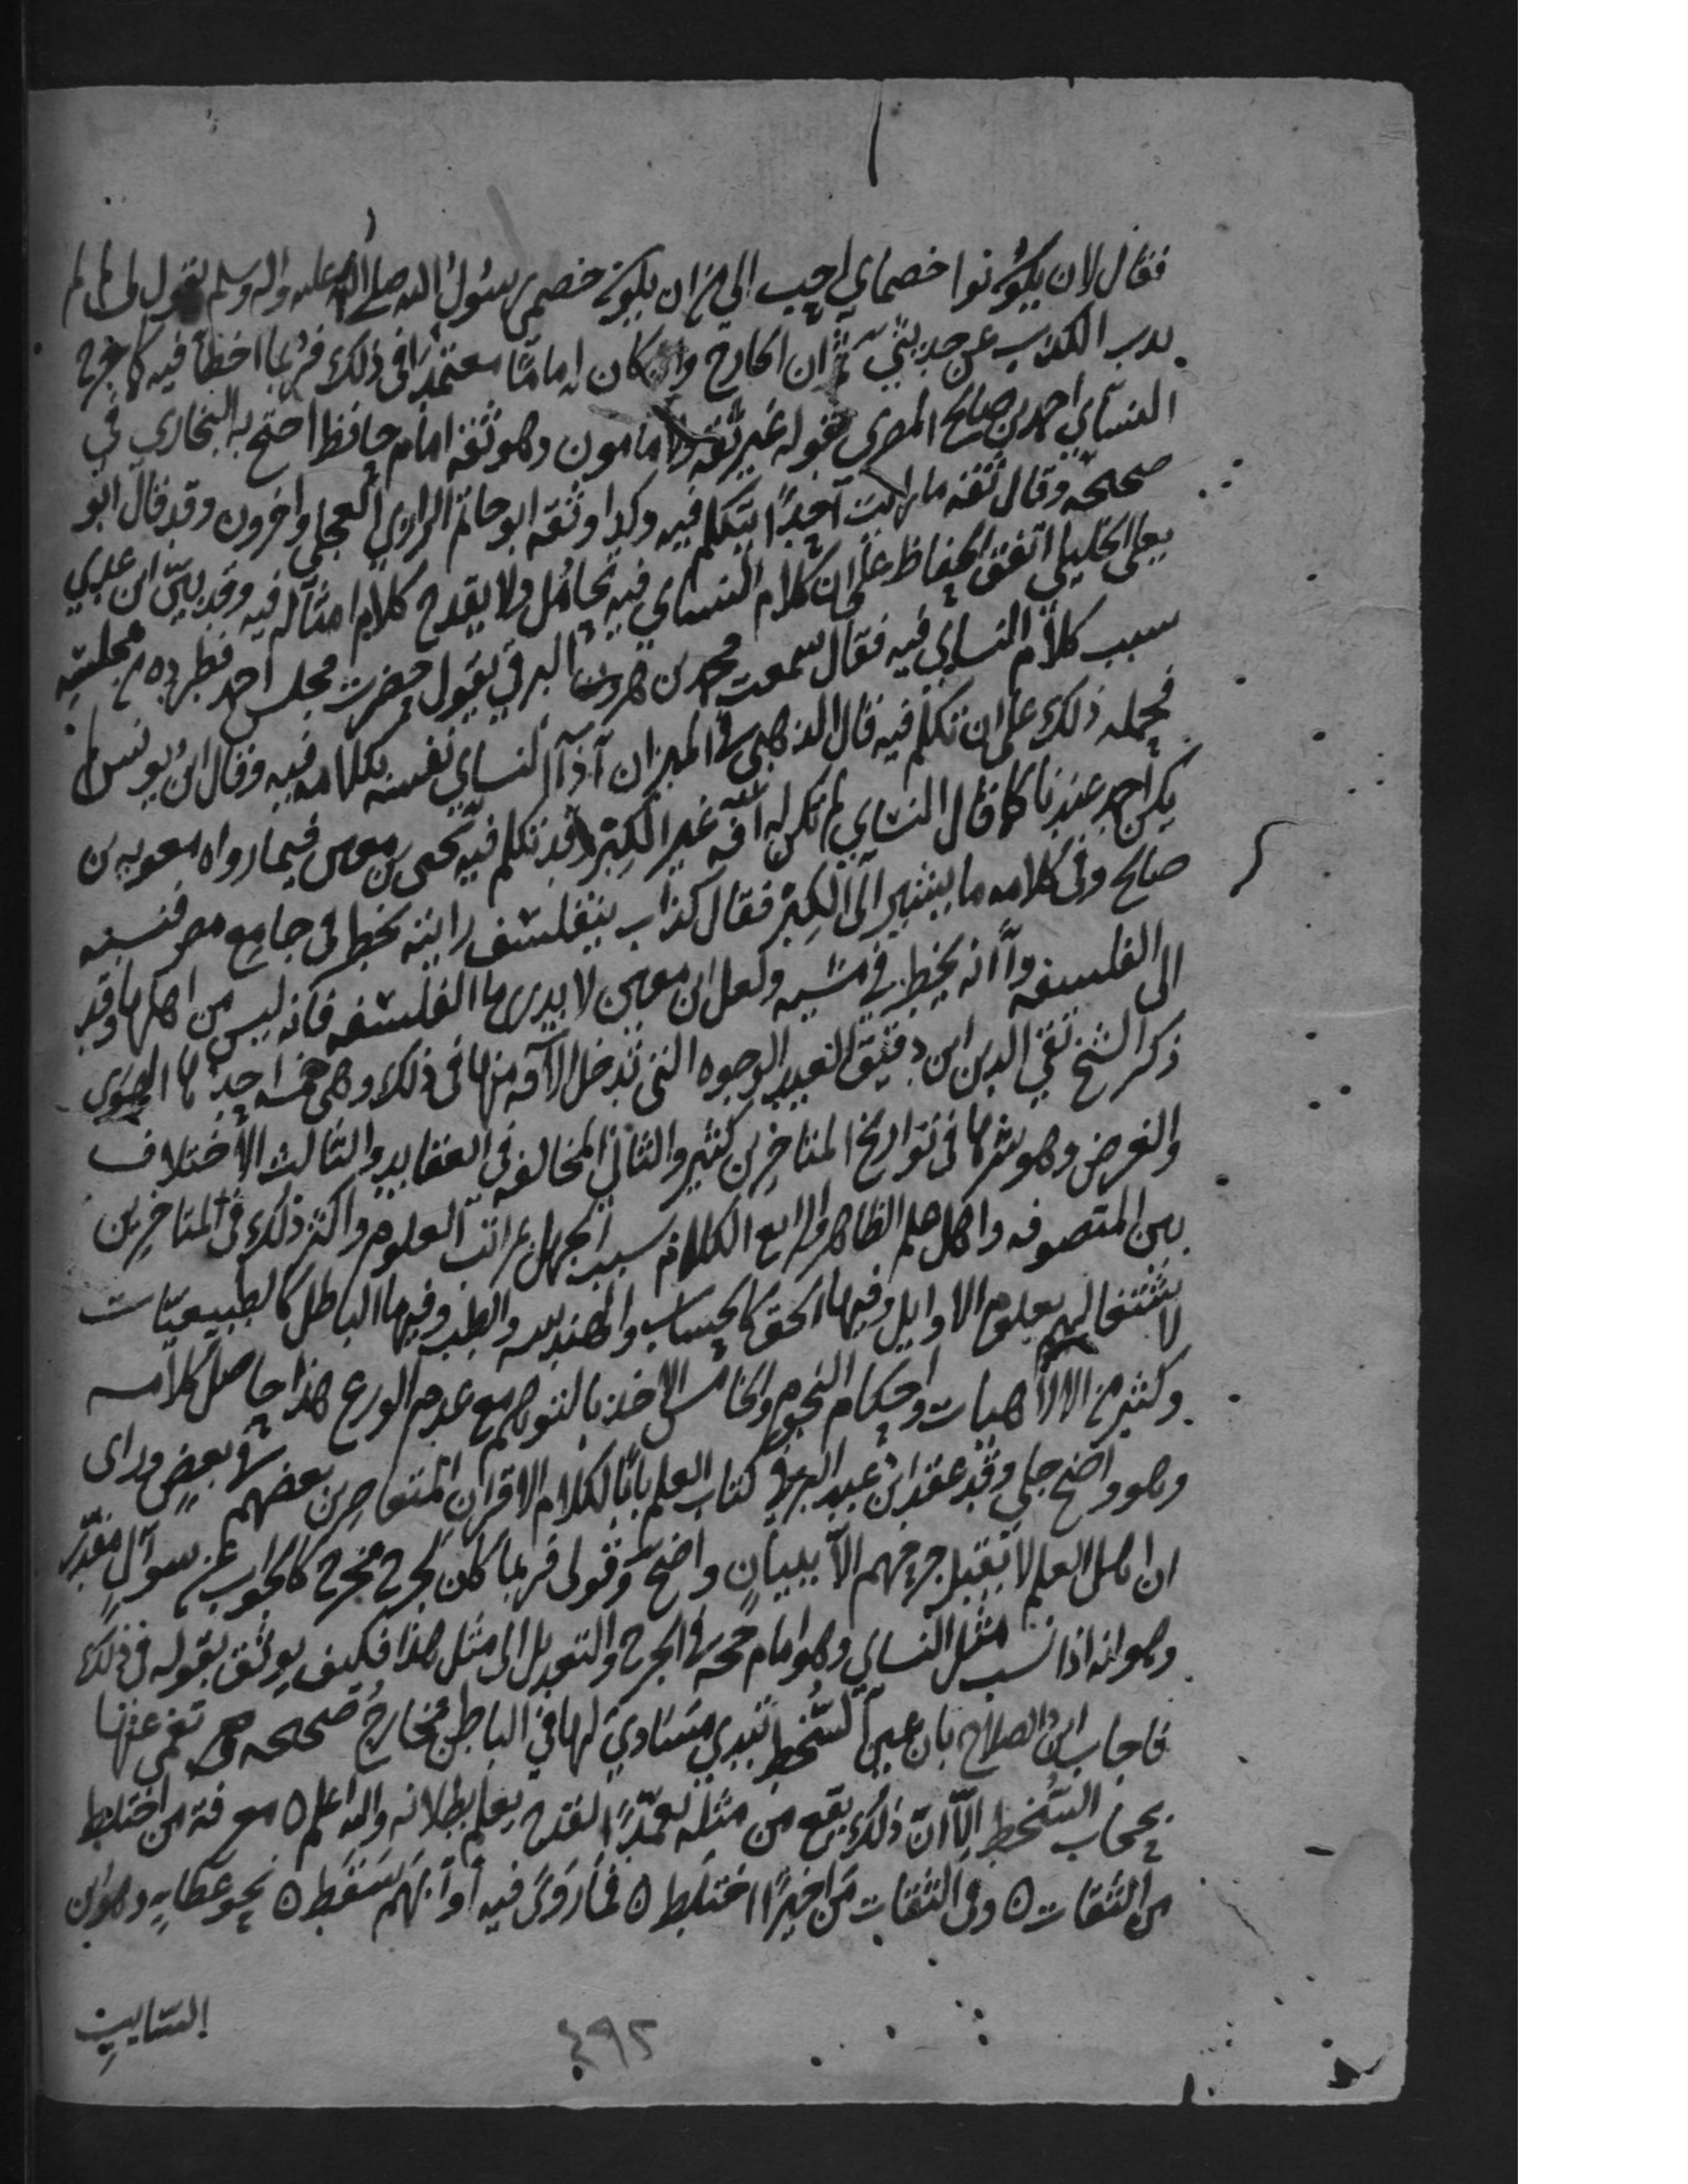 فقال لان يكونوا خصماي احب الي من ان يكون خصمي رسول الله صلى الله عليه واله وسلم يقول لي لم لم
يدب الكذب عن حديثي ثم ان الجارح وان كان اماما معتمدا في ذلك فربما اخطأ فيه كما جرح
النسآي احمد بن صالح المصري بقوله غير ثقه ولا مامون وهو ثقه امام حافظ احتج به البخاري في
صحيحه وقال ثقه ما رايت آحدًا يتكلم فيه وكذا وثقه ابو حاتم الرازي العجلي واخرون وقد قال ابو
يعلى الخليلي اتفق الحفاظ على ان كلام النساي فيه تحامُل ولا يقدح كلام امثاله فيه وقد بيّن ابن عدي
سبب كلام النساي فيه فقال سمعت محمد بن هرون البرقي يقول حضرت مجلس احمد فطرده من مجلسه
فحمله ذلك على ان تكلم فيه قال الذهبي في الميزان آذآ النساي نفسه بكلامه فيه وقال ابن يونس لم
يكن احمد عندنا كما قال النساي لم تكن له آفة غير الكبر وقد تكلم فيه يحيى بن معين فيما رواه معويه بن
صالح وفي كلامه ما يشير الى الكِبْر فقال كذاب يتفلسف رايته يخطر في جامع مصر فنسبه
الى الفلسفه وآنه يخطر في مشيه ولعل ابن معين لا يدرى ما الفلسفه فانه ليس من اهلها وقد
ذكر الشيخ تقي الدين ابن دقيق العيد الوجوه التي تدخل الآفه منها في ذلك وهي خمسه احدها الهوى
والغرض وهو شرها في تواريخ المتاخرين كثير والثاني المخالفه في العقايد والثالث الاختلاف
بين المتصوفه واهل علم الظاهر والرابع الكلام بسبب الجهل بمراتب العلوم واكثر ذلك في المتاخرين
لاشتغالهم بعلوم الاوايل وفيها الحق كالحساب والهندسه والطب وفيها الباطل كالطبيعيّات
وكثير من الالاهيات واحكام النجوم والخامس الاخذ بالتوهم مع عدم الورع هذا حاصل كلامه
وهو واضح جلي وقد عقد ابن عبد البر في كتاب العلم بابًا لكلام الاقران المتعاصرين بعضهم في بعضٍ وراى
ان اهل العلم لا تقبل جرحهم الآ ببيانٍ واضح وقولى فربما كان لجرح مخرج كالجواب عن سوآلٍ مقدّر
وهو انه اذا نسب مثل النساي وهو امام حجه في الجرح والتعديل الى مثل هذا فكيف يوثق بقوله في ذلك
فاجاب ابن الصلاح بان عين السُّخط تبدي مساوي لها في الباطن مخارج صحيحه تعمى عنها
بحجاب السُّخط الّا انّ ذلك يقع من مثله تعمّدًا لقدح يعلم بطلانه والله اعلم ٥ معرفة من اختلط
من الثقات ٥ وفي الثقات مَن اخيرًا اختلط ٥ فما رَوَى فيه او ابهم سَقَط ٥ نحو عطاءٍ وهو ابن
السّايبِ
٤٩٢